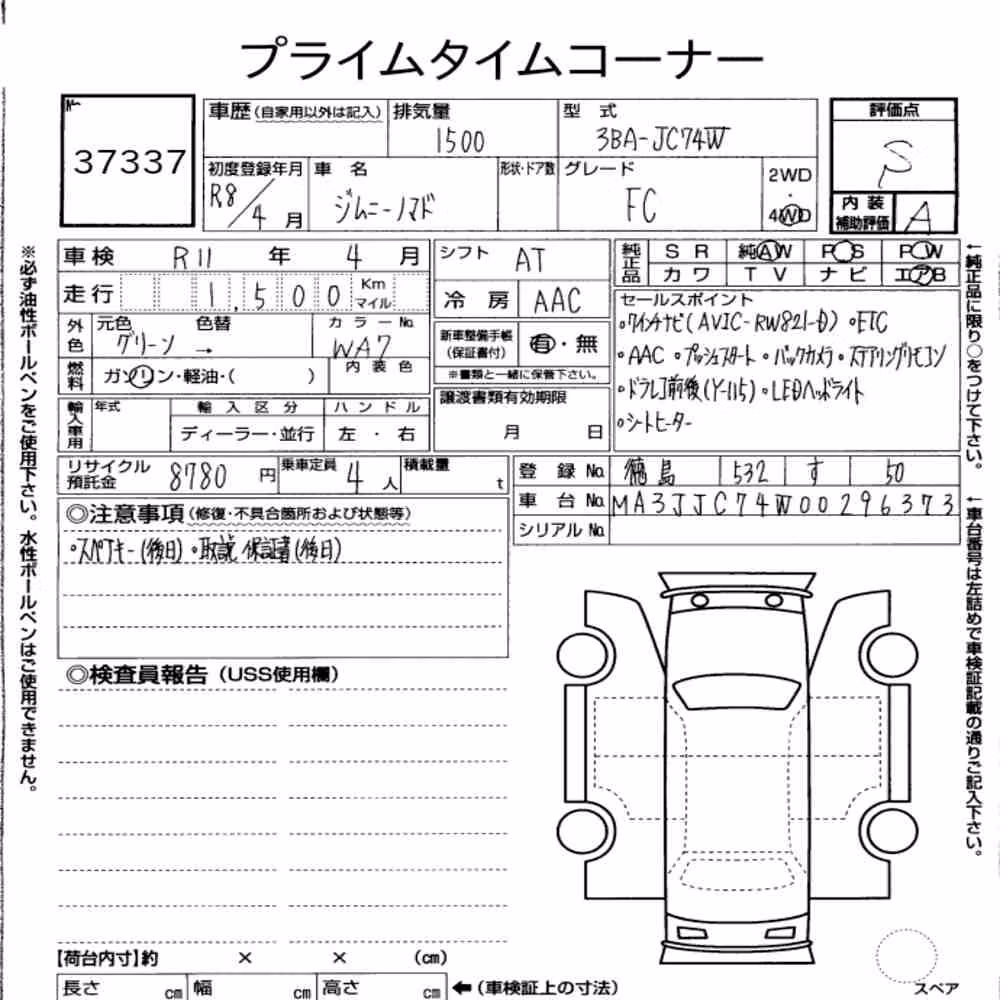 プライムタイムコーナー
No.
37337
車歴(自家用以外は記入) 排気量 型式 評価点
1500 3BA-JC74W S
初度登録年月 車名 形状・ドア数 グレード 2WD・4WD
R8/4月 ジムニーノマド FC
内装補助評価 A
車検 R11年 4月 シフト AT
純正品 SR 純AW PS PW
カワ TV ナビ エアB
走行 1,500 Km マイル
冷房 AAC
セールスポイント
・8インチナビ(AVIC-RW821-D) ・ETC
・AAC ・プッシュスタート ・バックカメラ ・ステアリングリモコン
・ドラレコ前後(Y-115) ・LEDヘッドライト
・シートヒーター
外色 元色 色替 カラーNo.
グリーン → WA7
新車整備手帳(保証書付) 有・無
※書類と一緒に保管下さい。
燃料 ガソリン・軽油・( ) 内装色
譲渡書類有効期限
月 日
輸入車用 年式 輸入区分 ハンドル
ディーラー・並行 左・右
リサイクル預託金 8780円 乗車定員 4人 積載量 t
登録No. 徳島 532 す 50
車台No. MA3JJC74W00296373
シリアルNo.
◎注意事項(修復・不具合箇所および状態等)
・スペアキー(後日) ・取説/保証書(後日)
◎検査員報告(USS使用欄)
【荷台内寸】約 × × (cm)
長さ cm 幅 cm 高さ cm ←(車検証上の寸法)
スペア
※必ず油性ボールペンをご使用下さい。水性ボールペンはご使用できません。
←純正品に限り○をつけて下さい。
←車台番号は左詰めで車検証記載の通りご記入下さい。